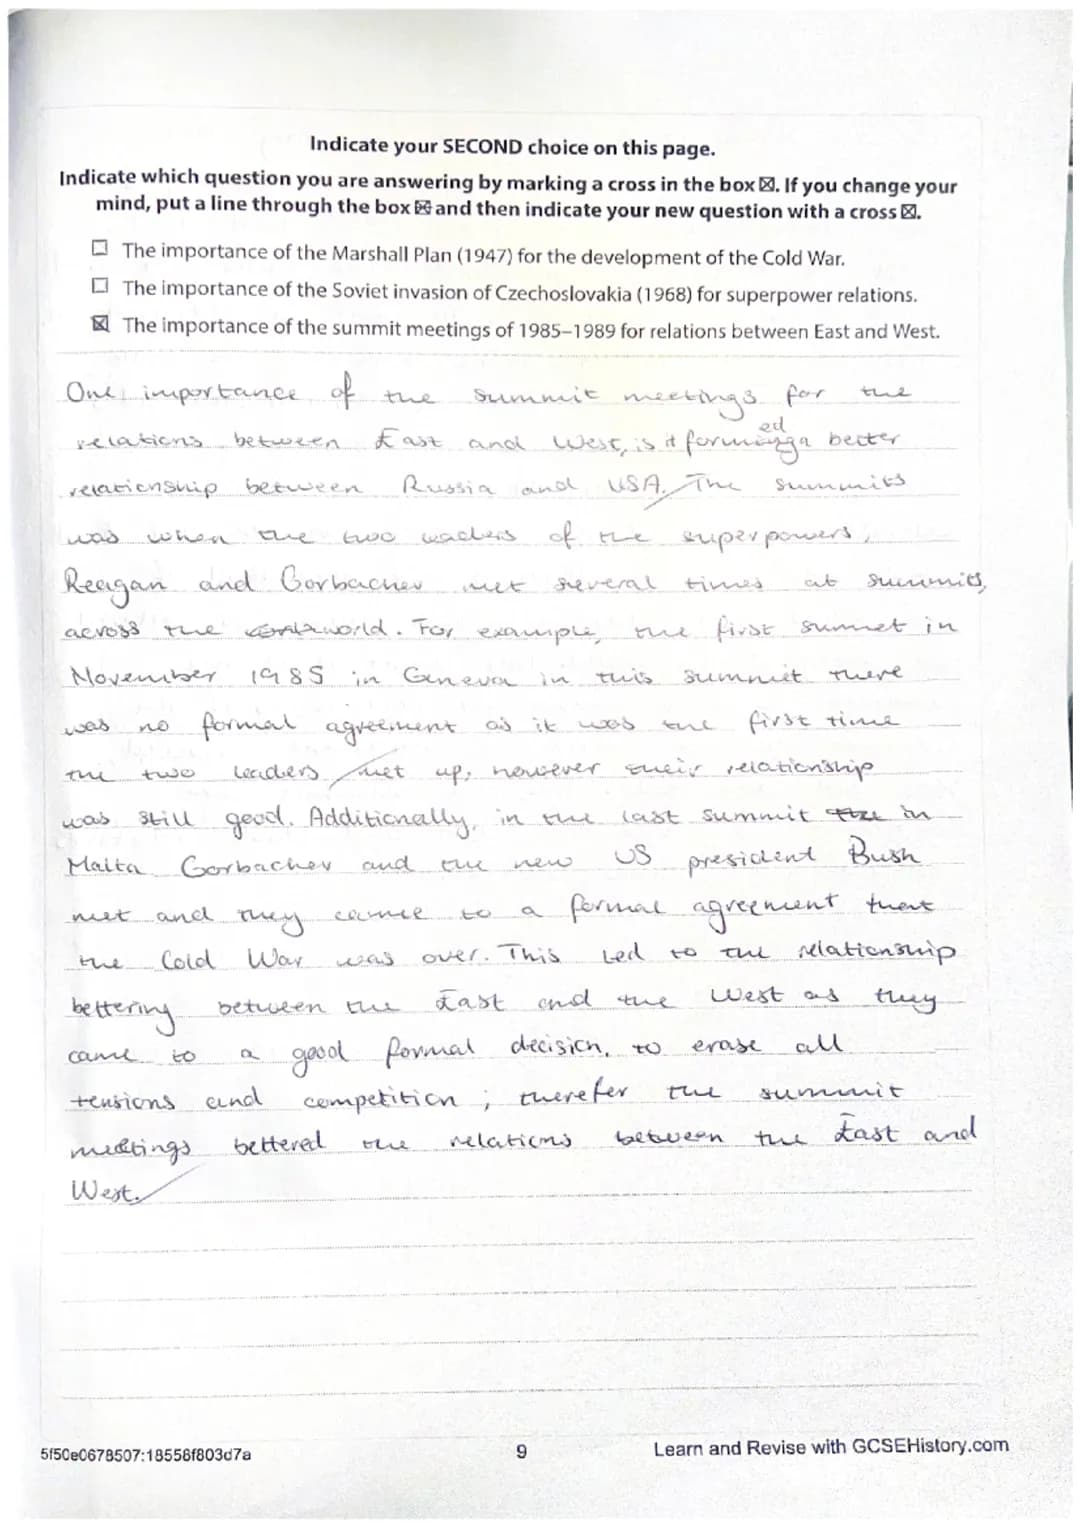 Indicate your SECOND choice on this page.
Indicate which question you are answering by marking a cross in the box ☒. If you change your
mind, put a line through the box ☒ and then indicate your new question with a cross ☒.
☐ The importance of the Marshall Plan (1947) for the development of the Cold War.
☐ The importance of the Soviet invasion of Czechoslovakia (1968) for superpower relations.
☒ The importance of the summit meetings of 1985–1989 for relations between East and West.
One importance of the summit meetings for the
relations between East and West, is it formed a better
relationship between Russia and USA. The summits
was when the two leaders of the superpowers,
Reagan and Gorbachev met several times at summits,
across the world. For example, the first summet in
November 1985 in Geneva in this summit there
was no formal agreement as it was the first time
the two leaders met up, however their relationship
was still good. Additionally, in the last summit in
Malta Gorbachev and the new US president Bush
met and they came to a formal agreement that
the Cold War was over. This led to the relationship
bettering between the East and the West as they
came to a good formal decision, to erase all
tensions and competition; therefer the summit
meetings bettered the relations between the East and
West.
5f50e0678507:18556f803d7a
9
Learn and Revise with GCSEHistory.com